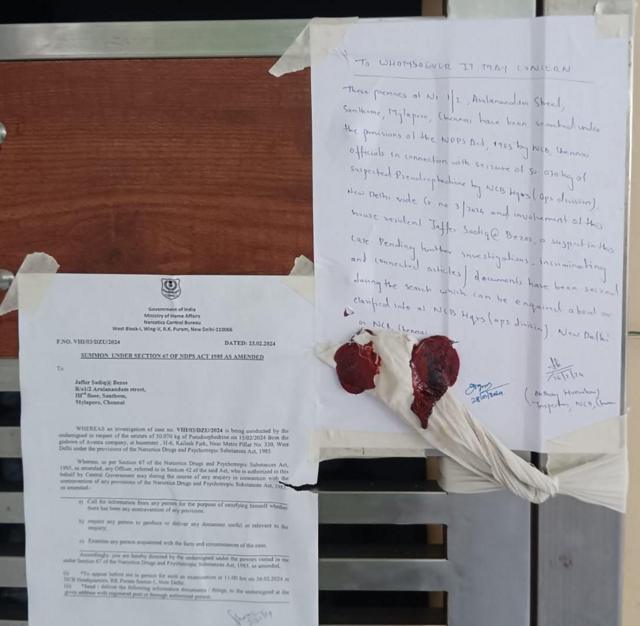 TO WHOMSOEVER IT MAY CONCERN
These premises at No 1/2, Arulanandam Street,
Santhome, Mylapore, Chennai have been searched under
the provisions of the NDPS Act, 1985 by NCB, Chennai
officials in connection with seizure of 50.070 kg of
suspected Pseudoephedrine by NCB Hqrs (Ops division),
New Delhi vide Cr. no 3/2024 and involvement of this
house resident Jaffer Sadiq@ Bezos, a suspect in this
case. Pending further investigations. incriminating
and connected articles/documents have been seized
during the search which can be enquired about or
clarified into at NCB Hqrs (ops division), New Delhi
or NCB, Chennai
Inspector, NCB,
Government of India
Ministry of Home Affairs
Narcotics Control Bureau
West Block-I, Wing-V, R.K. Puram, New Delhi-110066
F.NO. VIII/03/DZU/2024 DATED: 23.02.2024
SUMMON UNDER SECTION 67 OF NDPS ACT 1985 AS AMENDED
To
Jaffar Sadiq@ Bezoz
R/o1/2 Arulanandam street,
IIIrd floor, Santhom,
Mylapore, Chennai
WHEREAS an investigation of case no. VIII/03/DZU/2024 is being conducted by the
undersigned in respect of the seizure of 50.070 kg of Pseudoephedrine on 15/02/2024 from the
godown of Avanta company at basement , H-6, Kailash Park, Near Metro Pillar No. 330, West
Delhi under the provisions of Narcotics Drugs and Psychotropic Substances Act, 1985
Whereas, as per Section 67 of the Narcotics Drugs and Psychotropic Substances Act,
1985, as amended, any Officer, referred to in Section 42 of the said Act, who is authorized in this
behalf by Central Government may during the course of any enquiry in connection with the
contravention of any provisions of the Narcotics Drugs and Psychotropic Substances Act, 1985
as amended.
a) Call for information from any person for the purpose of satisfying himself whether
there has been any contravention of any provisions.
b) request any person to produce or deliver any document useful or relevant to the
enquiry.
c) Examine any person acquainted with the facts and circumstances of the case.
Accordingly, you are hereby directed by the undersigned under the powers vested in me
under Section 67 of the Narcotics Drugs and Psychotropic Substances Act, 1985, as amended,
(i) *To appear before me in person for such an examination at 11.00 hrs on 26.02.2024 at
NCB Headquarters, R.K Puram Sector-1, New Delhi.
(ii) *Send / deliver the following information documents / things, to the undersigned at the
given address with registered post or through authorized person.